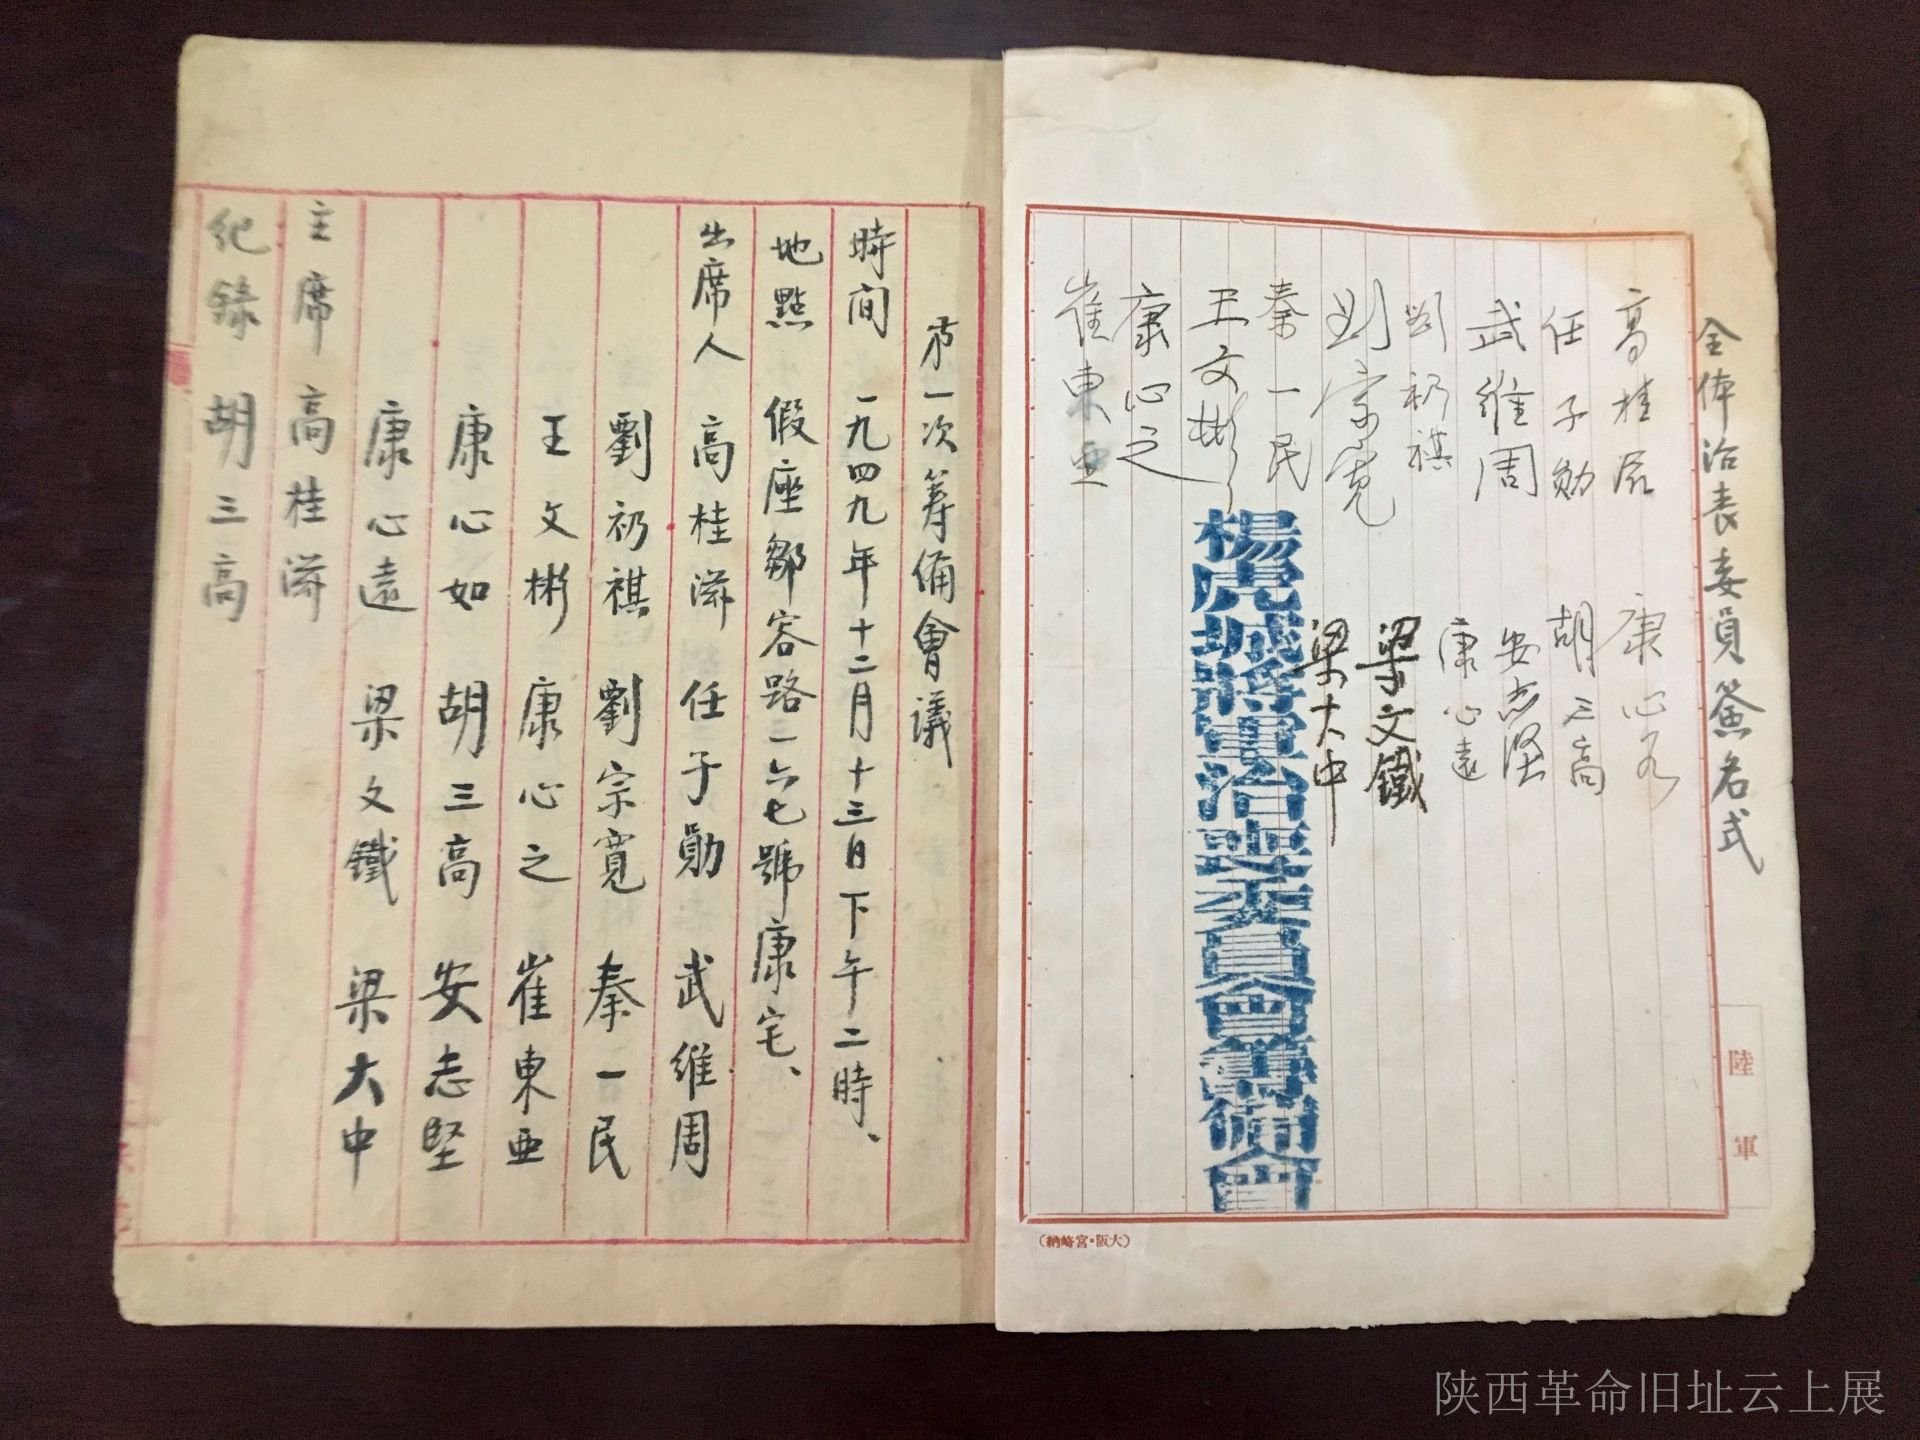 全体治丧委員簽名式
高桂滋 康心如
任子勋 胡三高
武維周 安志坚
劉礽祺 康心遠
刘宗宽 梁文鐵
秦一民 梁大中
王文彬
康心之
崔東亜
楊虎城將軍治喪委員會籌備會
陸軍
(大阪·宮崎納)
㐧一次筹備會議
時间 一九四九年十二月十三日下午二時、
地點 假座鄒容路一六七號康宅、
出席人 高桂滋 任子勛 武維周
劉礽祺 劉宗寬 秦一民
王文彬 康心之 崔東亜
康心如 胡三高 安志堅
康心遠 梁文鐵 梁大中
主席 高桂滋
纪錄 胡三高
陕西革命旧址云上展